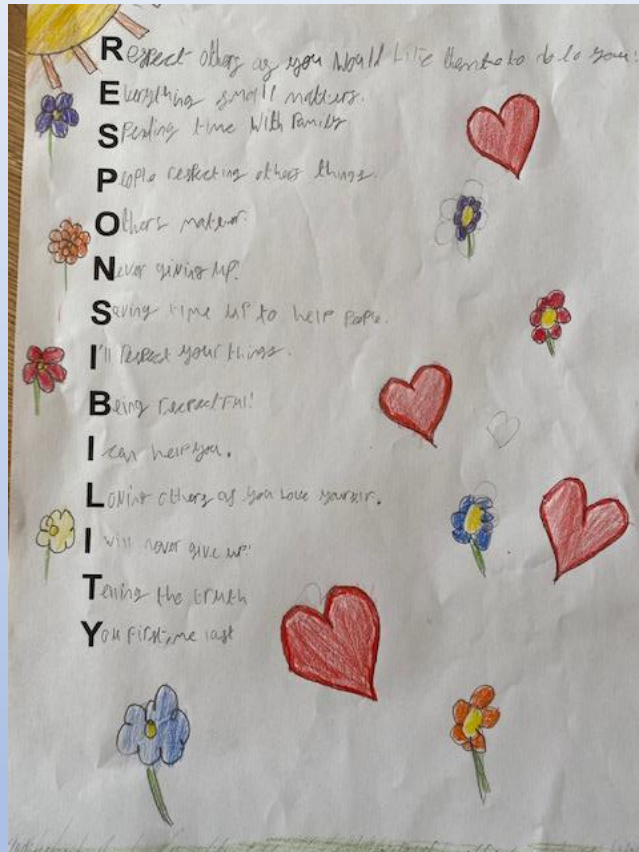 Respect others as you Would Like them to do to you!
Everything small matters.
Spending time With Family
People respecting others things.
Others matter.
Never giving up.
Saving time up to help People.
I'll respect your things.
Being respectful!
I can help you.
Loving others as you Love yourself.
I will never give up!
Telling the truth
You first, me last